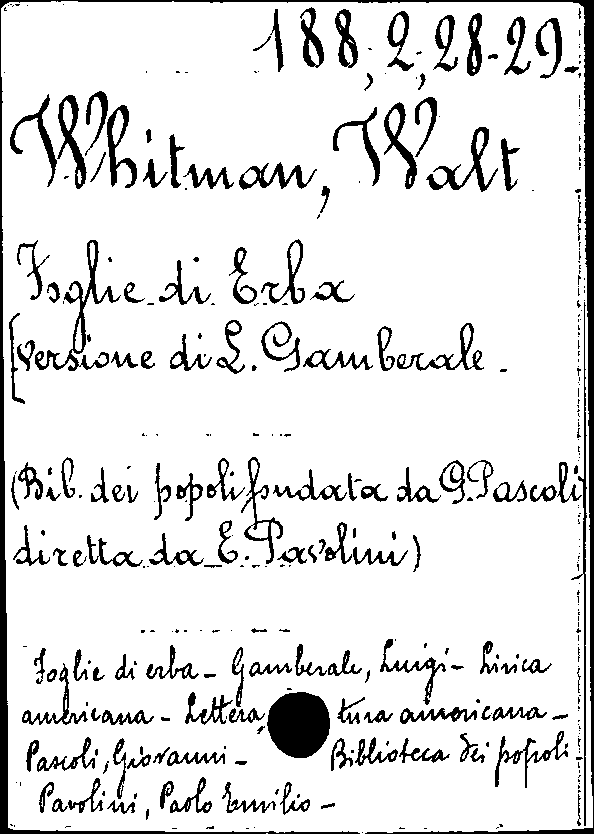 188,2,28-29-
Whitman, Walt
Foglie di Erba
[Versione di L. Gamberale.
(Bib. dei popoli fondata da G. Pascoli
diretta da E. Pavolini)
Foglie di erba - Gamberale, Luigi - Lirica
americana - Lettera tura americana -
Pascoli, Giovanni - Biblioteca dei popoli.
Pavolini, Paolo Emilio -